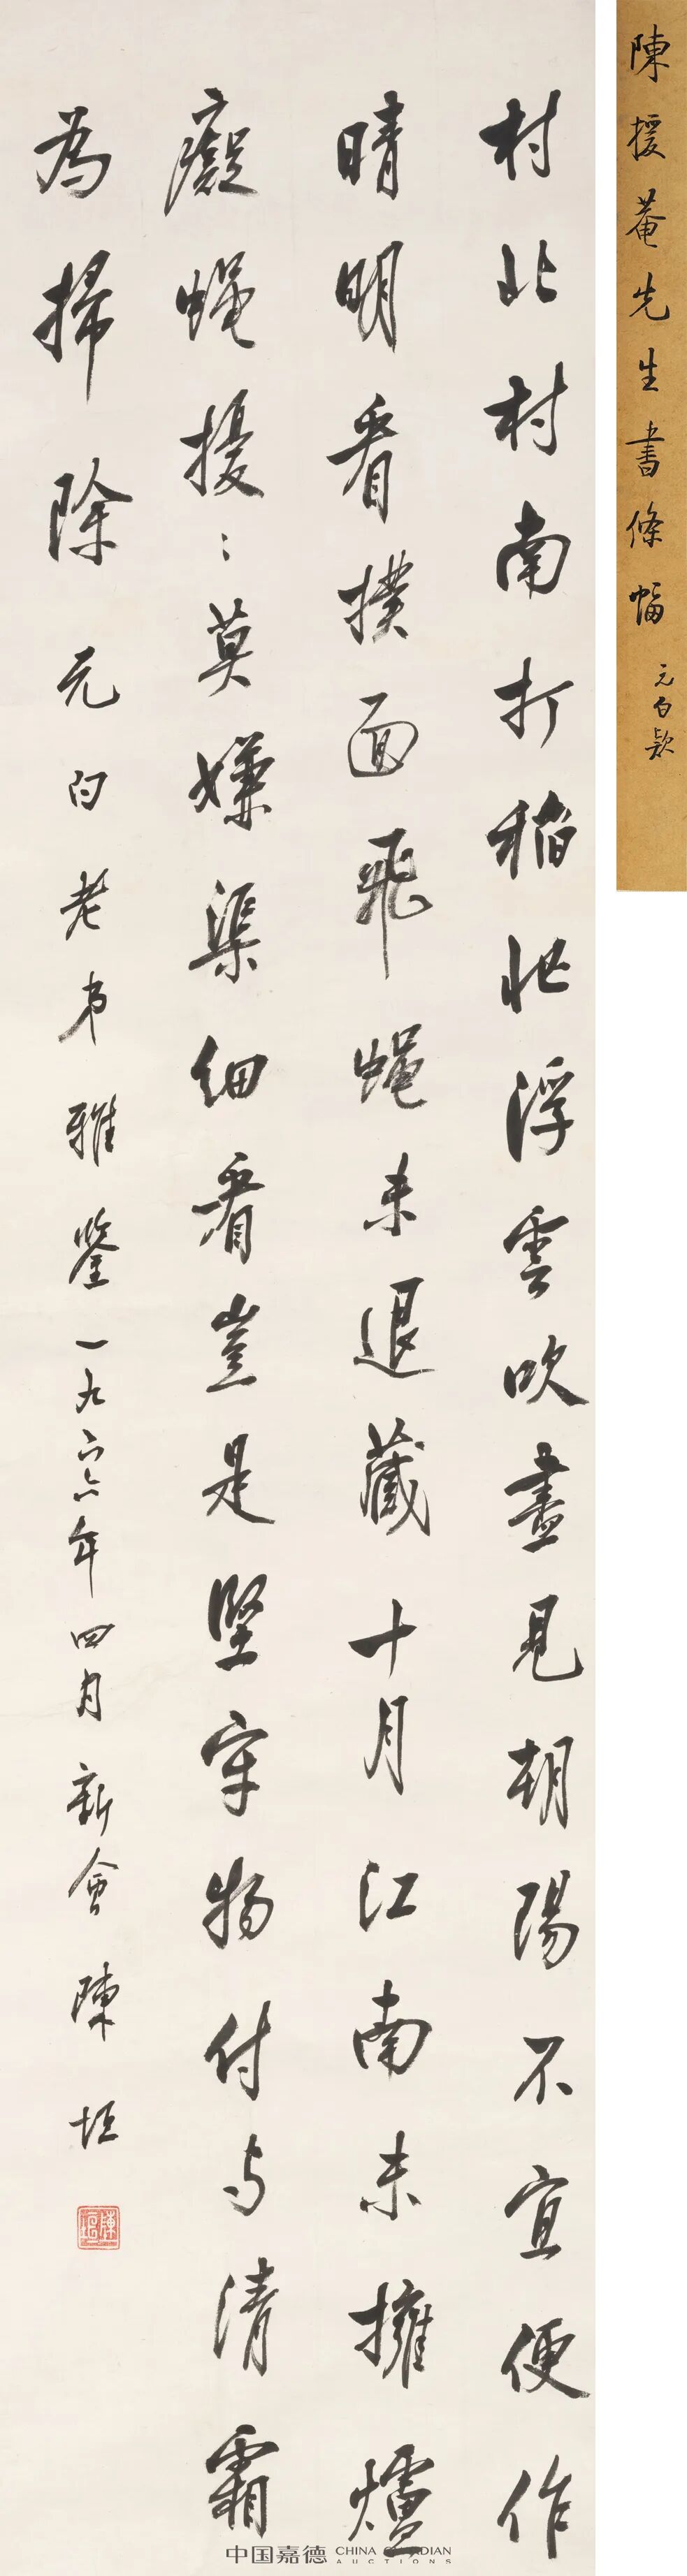 陳援菴先生書條幅
元白款
村北村南打稻忙浮雲吹盡見朝陽不宜便作
晴明看撲面飛蠅未退藏十月江南未擁爐
癡蠅擾〻莫嫌渠細看豈是堅牢物付与清霜
為掃除 元白老弟雅鑒 一九六六年四月 新會陳垣
陳垣
中国嘉德 CHINA GUARDIAN AUCTIONS